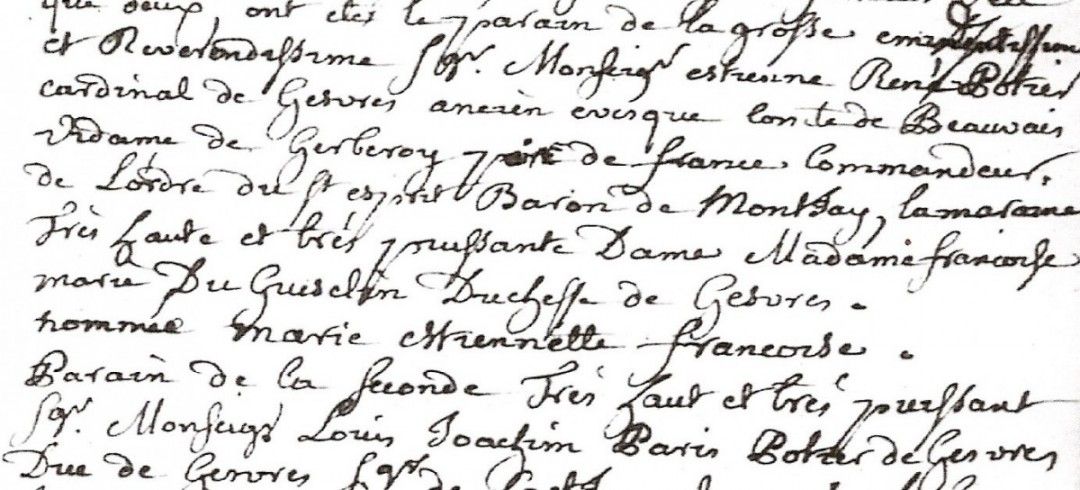 que deux, ont etés le parain de la grosse eminentissime
et Reverendissime Sgr. Monseigr estienne René Potier
cardinal de Gesvres ancien evesque Comte de Beauvais
vidame de Gerberoy pair de france Commandeur
de L'ordre du St esprit Baron de Montjay, la maraine
Très haute et très puissante Dame Madame francoise
marie Du Guesclin Duchesse de Gesvres.
nommée marie estiennette francoise.
Parain de la seconde Très haut et très puissant
Sgr. Monseigr Louis Joachim Paris Potier de Gesvres
Duc de Gesvres Sgr de